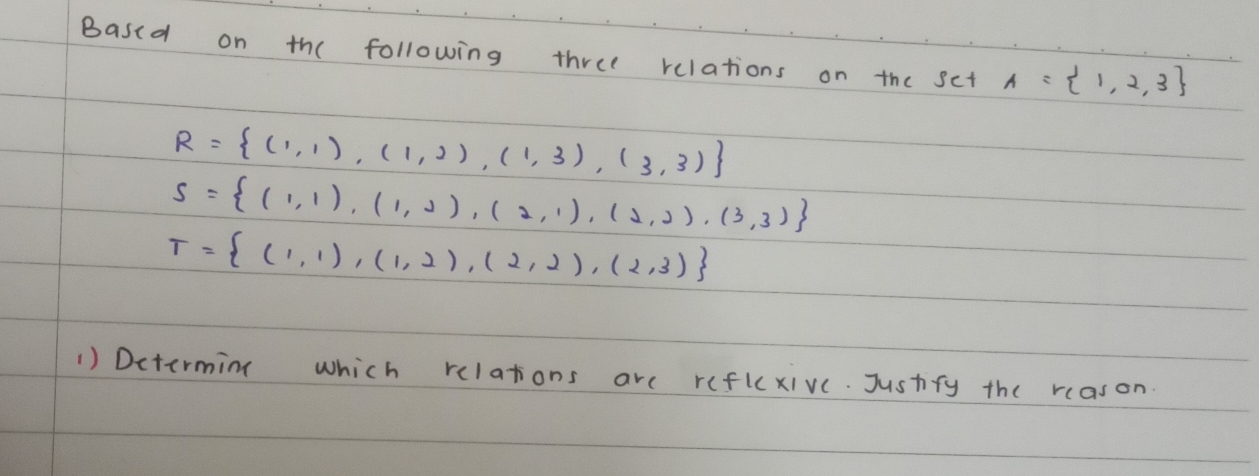 Based on the following three relations on the set A = {1, 2, 3}
R = {(1,1), (1,2), (1,3), (3,3)}
S = {(1,1), (1,2), (2,1), (2,2), (3,3)}
T = {(1,1), (1,2), (2,2), (2,3)}
1) Determine which relations are reflexive. Justify the reason.